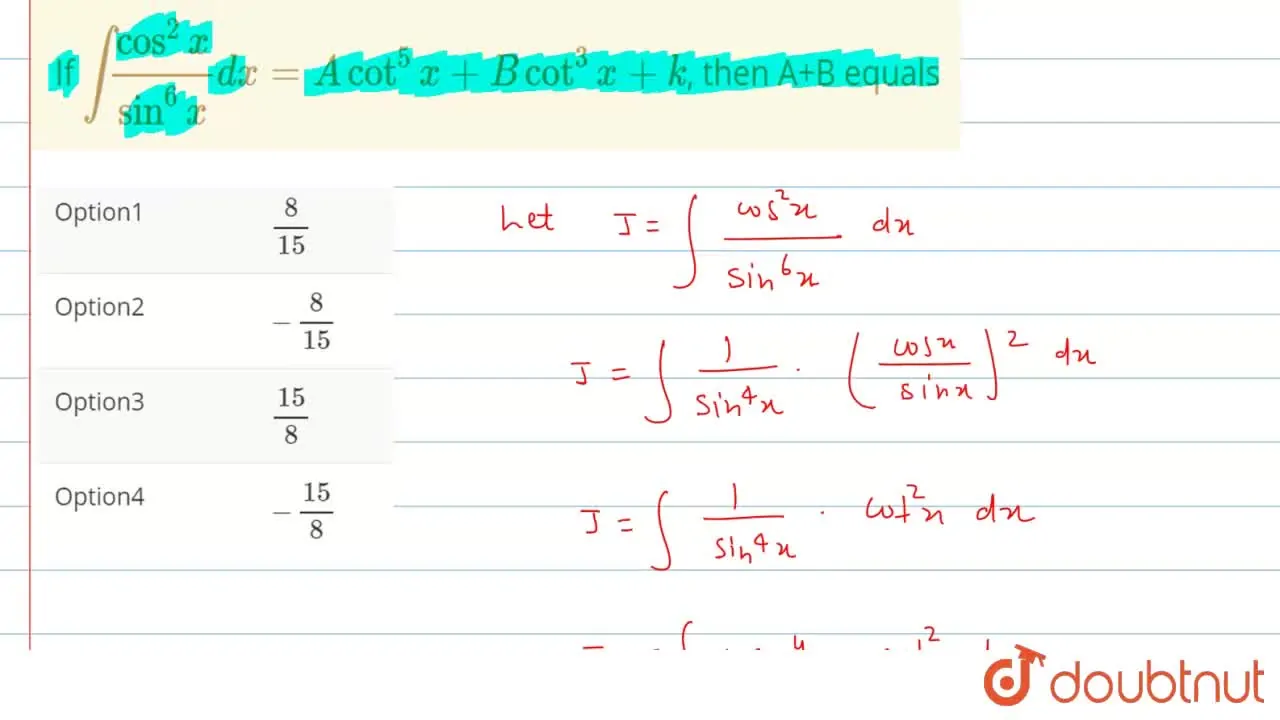 If ∫ cos² x / sin⁶ x dx = A cot⁵ x + B cot³ x + k, then A+B equals
Option1 8/15
Option2 − 8/15
Option3 15/8
Option4 − 15/8
Let I = ∫ cos²x / sin⁶x dx
I = ∫ 1 / sin⁴x · (cosx / sinx)² dx
I = ∫ 1 / sin⁴x · cot²x dx
doubtnut